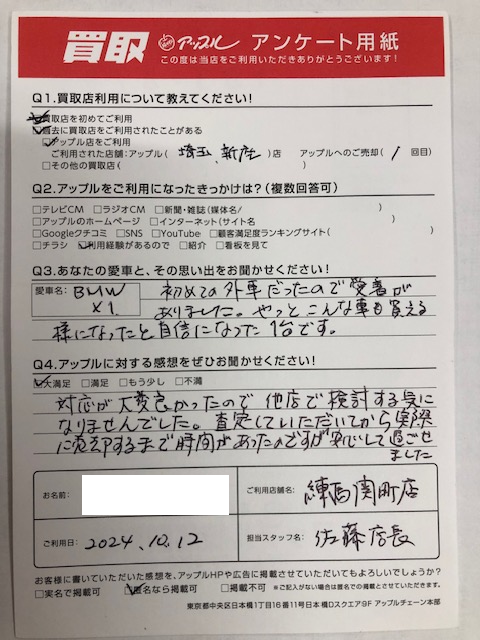 買取 アップル アンケート用紙
この度は当店をご利用いただきありがとうございます!
Q1.買取店利用について教えてください!
買取店を初めてご利用
過去に買取店をご利用されたことがある
アップル店をご利用
ご利用された店舗:アップル( 埼玉、新座 )店 アップルへのご売却( 1 回目)
□その他の買取店( )
Q2.アップルをご利用になったきっかけは?(複数回答可)
□テレビCM □ラジオCM □新聞・雑誌(媒体名/ )
□アップルのホームページ □インターネット(サイト名 )
□Googleクチコミ □SNS □YouTube □顧客満足度ランキングサイト( )
□チラシ 利用経験があるので □紹介 □看板を見て
Q3.あなたの愛車と、その思い出をお聞かせください!
愛車名: BMW X1. 初めての外車だったので愛着が
ありました。やっとこんな車も買える
様になったと自信になった1台です。
Q4.アップルに対する感想をぜひお聞かせください!
大満足 □満足 □もう少し □不満
対応が大変良かったので他店で検討する気に
なりませんでした。査定していただいてから実際
に売却するまで時間があったのですが安心して過ごせ
ました
お名前: ご利用店舗名: 練馬関町店
ご利用日: 2024.10.12 担当スタッフ名: 佐藤店長
お客様に書いていただいた感想を、アップルHPや広告に掲載させていただいてもよろしいでしょうか?
□実名で掲載可 匿名なら掲載可 □掲載不可 ※ご記入がない場合は匿名での掲載とさせていただきます。
東京都中央区日本橋1丁目16番11号日本橋Dスクエア9F アップルチェーン本部